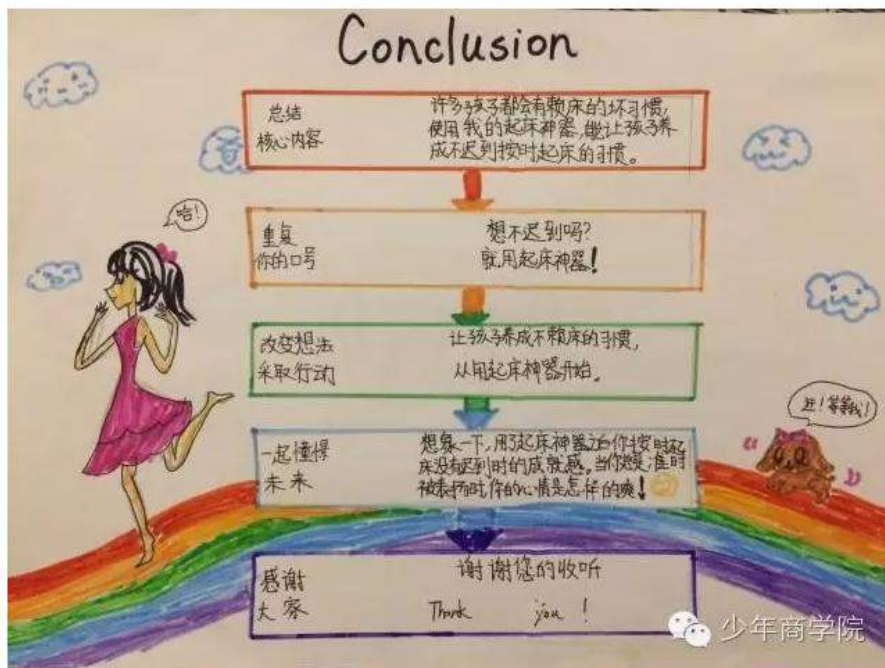 Conclusion
总结
核心内容
许多孩子都会有赖床的坏习惯,
使用我的起床神器,能让孩子养
成不迟到按时起床的习惯。
哈!
重复
你的口号
想不迟到吗?
就用起床神器!
改变想法
采取行动
让孩子养成不赖床的习惯,
从用起床神器开始。
汪!等等我!
一起憧憬
未来
想象一下,用了起床神器之后你按时起
床没有迟到时的成就感。当你因准时
被表扬时,你的心情是怎样的爽!
感谢
大家
谢谢您的收听
Thank you !
少年商学院